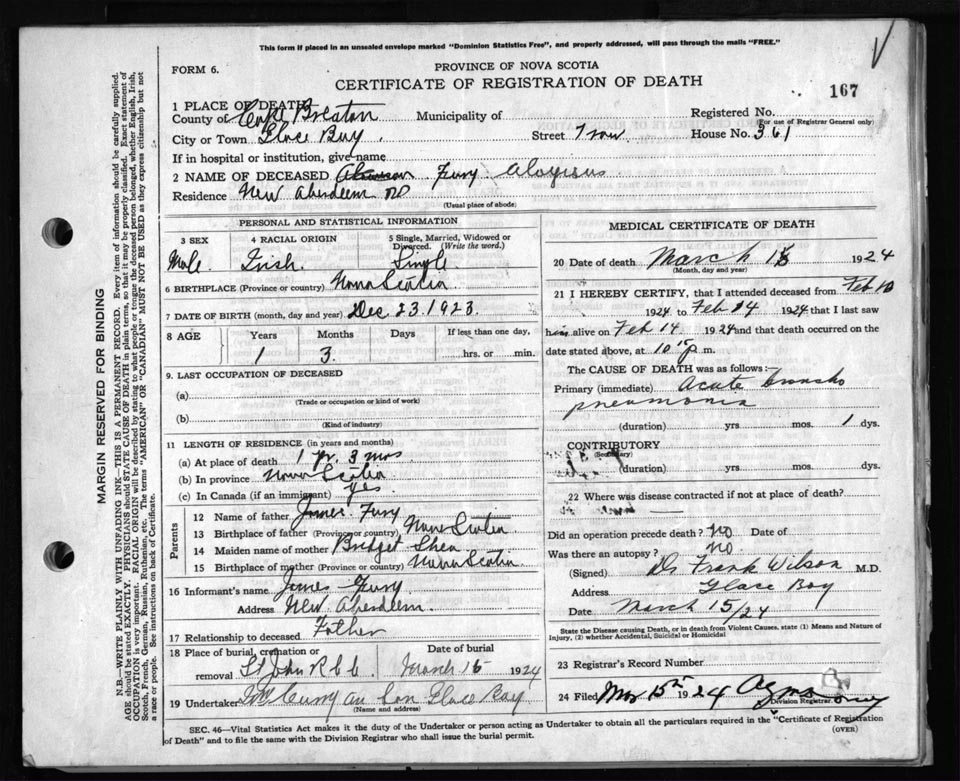 This form if placed in an unsealed envelope marked "Dominion Statistics Free", and properly addressed, will pass through the mails "FREE."
FORM 6.
PROVINCE OF NOVA SCOTIA
CERTIFICATE OF REGISTRATION OF DEATH
167
1 PLACE OF DEATH
County of Cape Breton Municipality of Registered No.
(For use of Registrar General only)
City or Town Glace Bay. Street House No. 361
If in hospital or institution, give name
2 NAME OF DECEASED Fury Aloysius
Residence New Aberdeen
(Usual place of abode)
PERSONAL AND STATISTICAL INFORMATION
3 SEX 4 RACIAL ORIGIN 5 Single, Married, Widowed or Divorced. (Write the word.)
Male. Irish. Single
6 BIRTHPLACE (Province or country) Nova Scotia
7 DATE OF BIRTH (month, day and year) Dec 23.1923.
8 AGE Years Months Days If less than one day,
1 3. hrs. or min.
9. LAST OCCUPATION OF DECEASED
(a)
(Trade or occupation or kind of work)
(b)
(Kind of industry)
11 LENGTH OF RESIDENCE (in years and months)
(a) At place of death 1 yr. 3 mos
(b) In province Nova Scotia
(c) In Canada (if an immigrant) yes.
Parents
12 Name of father James Fury
13 Birthplace of father (Province or country) Nova Scotia
14 Maiden name of mother Bridget Shea
15 Birthplace of mother (Province or country) Nova Scotia
16 Informant's name James Fury
Address New Aberdeen.
17 Relationship to deceased Father
18 Place of burial, cremation or removal Date of burial
St John March 1924
19 Undertaker Son Glace Bay
(Name and address)
MEDICAL CERTIFICATE OF DEATH
20 Date of death March 1924
(Month, day and year)
21 I HEREBY CERTIFY, that I attended deceased from Feb 10
1924 to Feb 14 1924 that I last saw
him alive on Feb 14 1924 and that death occurred on the
date stated above, at 10 p m.
The CAUSE OF DEATH was as follows:—
Primary (immediate) Acute broncho
pneumonia
(duration) yrs. mos. 1 dys.
CONTRIBUTORY
(Secondary)
(duration) yrs. mos. dys.
22 Where was disease contracted if not at place of death?
Did an operation precede death? No Date of
Was there an autopsy? No
(Signed) Dr Frank Wilson M.D.
Address Glace Bay
Date March 15/24
State the Disease causing Death, or in death from Violent Causes, state (1) Means and Nature of Injury, (2) whether Accidental, Suicidal or Homicidal
23 Registrar's Record Number
24 Filed Mar 15th 1924
Division Registrar
SEC. 46—Vital Statistics Act makes it the duty of the Undertaker or person acting as Undertaker to obtain all the particulars required in the "Certificate of Registration
of Death" and to file the same with the Division Registrar who shall issue the burial permit.
(OVER)
MARGIN RESERVED FOR BINDING
N.B.—WRITE PLAINLY, WITH UNFADING INK—THIS IS A PERMANENT RECORD. Every item of information should be carefully supplied.
AGE should be stated EXACTLY. PHYSICIANS should STATE CAUSE OF DEATH in plain terms, so that it may be properly classified. Exact statement of
OCCUPATION is very important. RACIAL ORIGIN will be described by stating to what people or tongue the deceased person belonged, whether English, Irish,
Scotch, French, German, Russian, Ruthenian, etc. The terms "AMERICAN" or "CANADIAN" MUST NOT BE USED as they express citizenship but not
a race or people. See instructions on back of Certificate.